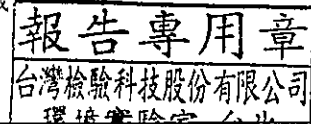 報告專用章
台灣檢驗科技股份有限公司
環境實驗室